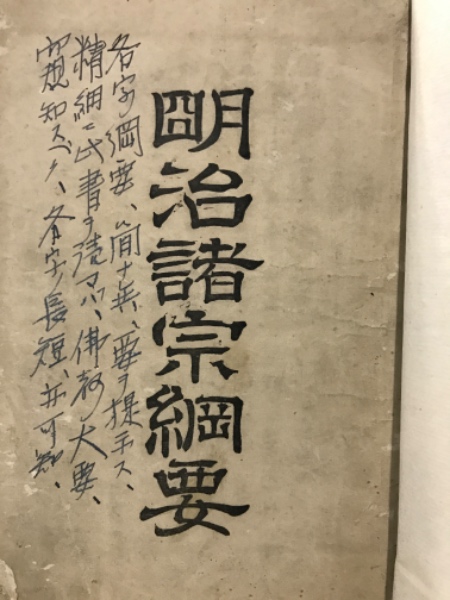 朙治諸宗綱要
各宗ノ綱要、簡ナ、要ヲ提示ス、
精細ニ此書ヲ読マバ、佛教ノ大要、
窺知スベク、各宗ノ長短、亦可知、